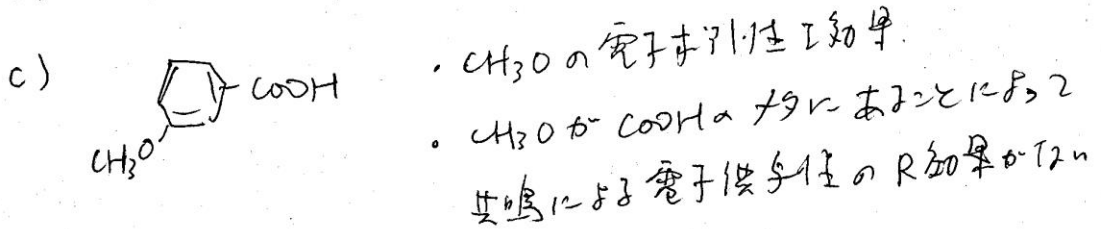 c)
COOH
CH3O
・CH3Oの電子求引性I効果.
・CH3OがCOOHのメタにあることによって
共鳴による電子供与性のR効果がない